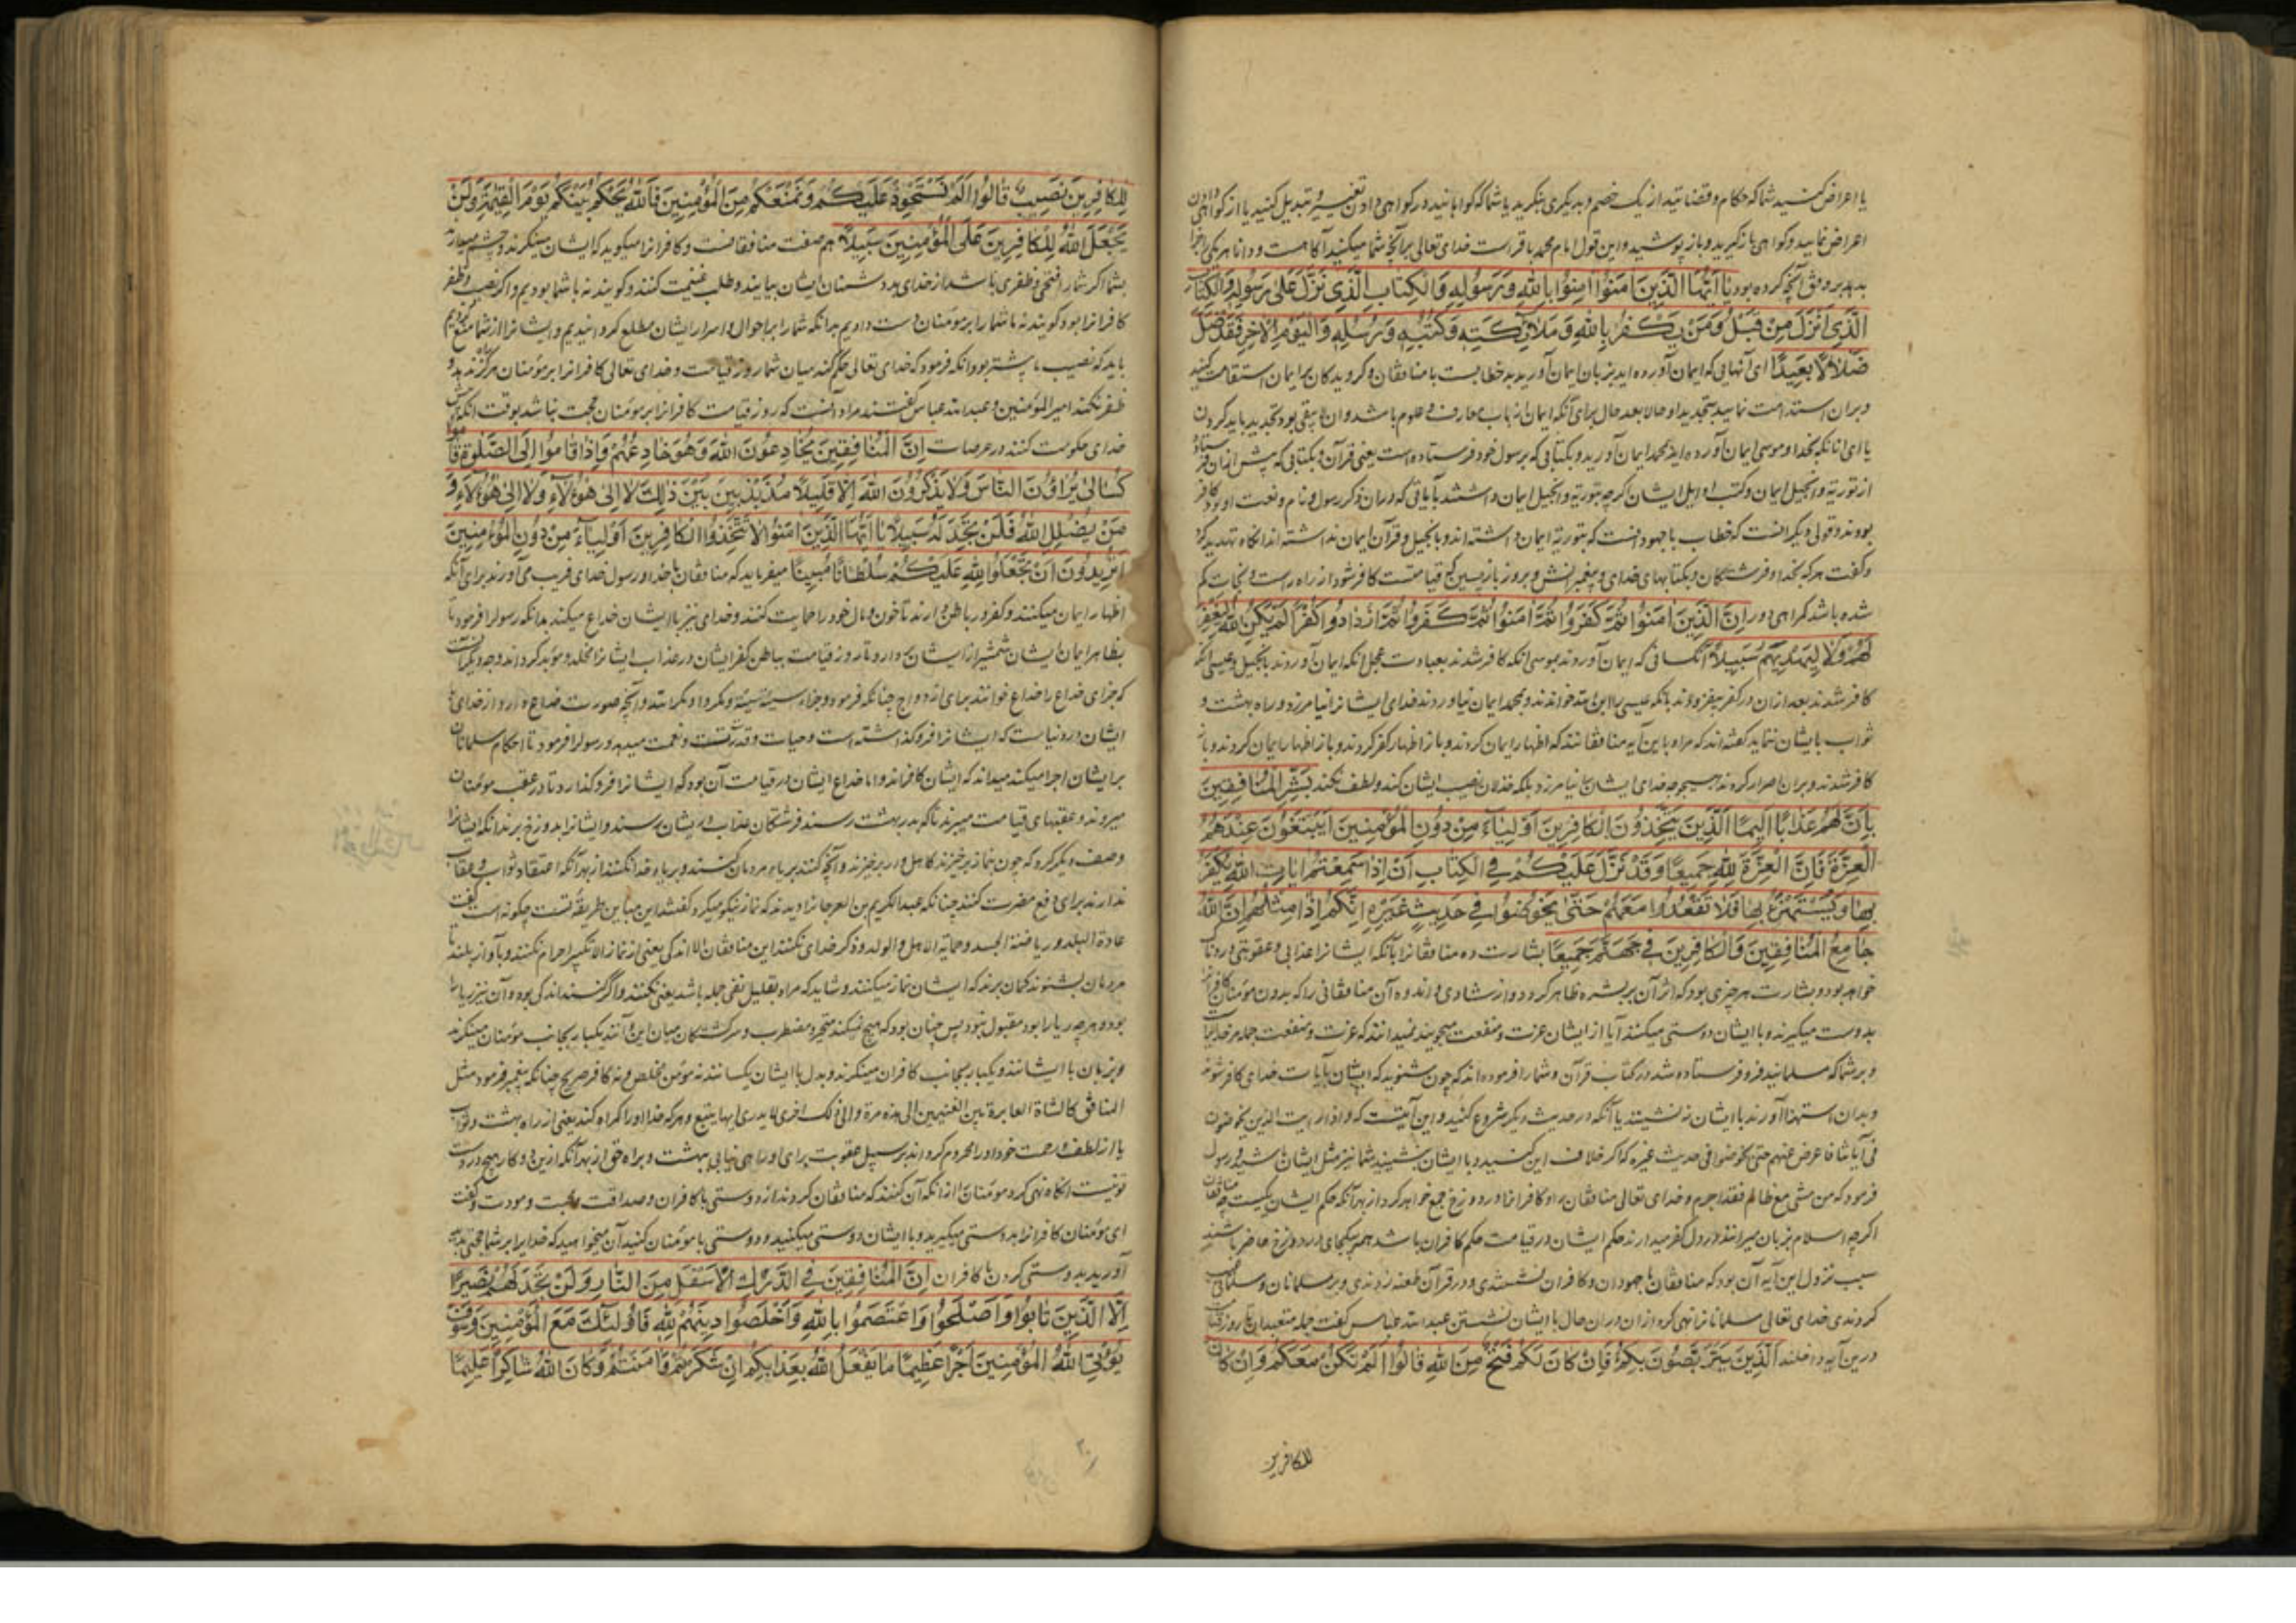 یا اعراض کنید شما که حکام و قضاتید از یک خصم و بدیگری بنگرید یا شما که گواهانید در گواهی دادن تغییر و تبدیل کنید یا از گواهی دادن
اعراض نمایید و گواهی بازگیرید و باز پوشید و این قول امام محمد باقر است خدای تعالی برآنچه شما میکنید آگاهست و دانا هر یکی را جزا
بدهد بر وفق آنچه کرده بود یَا اَیُّهَا الَّذِینَ اٰمَنُوا اٰمِنُوا بِاللهِ وَرَسُولِهِ وَالْکِتَابِ الَّذِی نَزَّلَ عَلٰی رَسُولِهِ وَالْکِتَابِ
الَّذِی اَنْزَلَ مِنْ قَبْلُ وَمَنْ یَکْفُرْ بِاللهِ وَمَلٰائِکَتِهِ وَکُتُبِهِ وَرُسُلِهِ وَالْیَوْمِ الْاٰخِرِ فَقَدْ ضَلَّ
ضَلَالًا بَعِیدًا ای آنهایی که ایمان آورده اید بزبان ایمان آورید بدل خطابست با منافقان و گرویدگان بر ایمان استقامت کنید
و بران استدامت نمایید بتجدید او حالا بعد حال برای آنکه ایمان از باب معارف و علوم باشد و آن لا یبقی بود تجدید باید کردن
یا ای آنانکه بخدا و موسی ایمان آورده اید بمحمد ایمان آورید و بکتابی که برسول خود فرستاده است یعنی قرآن و بکتابی که پیش از آن فرستاد
از توریة و انجیل ایمان و کتب اوایل ایشان اگرچه بتوریة و انجیل ایمان داشتند بآیاتی که در آن ذکر رسول و نام و نعت او بود کافر
بودند و قولی دیگر آنست که خطاب با جهودانست که بتوریة ایمان داشته اند و بانجیل و قرآن ایمان نداشته اند آنگاه تهدید کرد
و گفت هر که بخدا و فرشتگان و بکتابهای خدای و پیغمبرانش و بروز بازپسین که قیامتست کافر شود از راه راست و نجات گم
شده باشد گمراهی دور اِنَّ الَّذِینَ اٰمَنُوا ثُمَّ کَفَرُوا ثُمَّ اٰمَنُوا ثُمَّ کَفَرُوا ثُمَّ ازْدَادُوا کُفْرًا لَمْ یَکُنِ اللهُ لِیَغْفِرَ
لَهُمْ وَلَا لِیَهْدِیَهُمْ سَبِیلًا آنکسانی که ایمان آوردند بموسی آنگه کافر شدند بعبادت عجل آنگه ایمان آوردند بانجیل و عیسی آنگه
کافر شدند بعد ازان در کفر بیفزودند بآنکه عیسی را ابن الله خواندند و بمحمد ایمان نیاوردند خدای ایشانرا نیامرزد و راه بهشت و
ثواب بایشان ننماید گفته اند که مراد باین آیه منافقانند که اظهار ایمان کردند و باز اظهار کفر کردند و باز اظهار ایمان کردند و باز
کافر شدند و بران اصرار کردند بهیچوجه خدای ایشان را نیامرزد بلکه خذلان نصیب ایشان کند و لطف نکند بَشِّرِ الْمُنَافِقِینَ
بِاَنَّ لَهُمْ عَذَابًا اَلِیمًا الَّذِینَ یَتَّخِذُونَ الْکَافِرِینَ اَوْلِیَاءَ مِنْ دُونِ الْمُؤْمِنِینَ اَیَبْتَغُونَ عِنْدَهُمُ
الْعِزَّةَ فَاِنَّ الْعِزَّةَ لِلّٰهِ جَمِیعًا وَقَدْ نَزَّلَ عَلَیْکُمْ فِی الْکِتَابِ اَنْ اِذَا سَمِعْتُمْ اٰیَاتِ اللهِ یُکْفَرُ
بِهَا وَیُسْتَهْزَءُ بِهَا فَلَا تَقْعُدُوا مَعَهُمْ حَتّٰی یَخُوضُوا فِی حَدِیثٍ غَیْرِهِ اِنَّکُمْ اِذًا مِثْلُهُمْ اِنَّ اللهَ
جَامِعُ الْمُنَافِقِینَ وَالْکَافِرِینَ فِی جَهَنَّمَ جَمِیعًا بشارت ده منافقانرا بآنکه ایشانرا عذابی و عقوبتی دردناک
خواهد بود و بشارت هر چیزی بود که اثر آن بر بشره ظاهر گردد و از شادی و اندوه آن منافقانی را که بدون مؤمنان کافرانرا
بدوست میگیرند و با ایشان دوستی میکنند آیا از ایشان عزت و منفعت میجویند نمیدانند که عزت و منفعت جمله مر خدایراست
و بر شما که مسلمانید فرو فرستاده شد در کتاب قرآن و شما را فرموده اند که چون شنوید که ایشان بآیات خدای کافر شوند
و بدان استهزا آورند با ایشان ننشینید یا آنگه در حدیث دیگر شروع کنند و این آیتست که و اذا رایت الذین یخوضون
فی آیاتنا فاعرض عنهم حتی یخوضوا فی حدیث غیره که اگر خلاف این کنید و با ایشان بنشینید شما نیز مثل ایشان باشید و رسول
فرمود که من مشی مع ظالم فقد اجرم و خدای تعالی منافقانرا و کافرانرا در دوزخ جمع خواهد کرد از بهر آنکه حکم ایشان یکیست چه منافقان
اگرچه اسلام بزبان میرانند در دل کفر میدارند حکم ایشان در قیامت حکم کافران باشد همه بیکجای در دوزخ حاضر باشند
سبب نزول این آیه آن بود که منافقان با جهودان و کافران نشستندی و در قرآن طعنه زدندی و بر مسلمانان
کردندی خدای تعالی مسلمانانرا نهی کرد ازان دران حال با ایشان نشستن عبدالله عباس گفت جمله مبتدعان تا روز قیامت
درین آیه داخلند اَلَّذِینَ یَتَرَبَّصُونَ بِکُمْ فَاِنْ کَانَ لَکُمْ فَتْحٌ مِنَ اللهِ قَالُوا اَلَمْ نَکُنْ مَعَکُمْ وَاِنْ کَانَ
للکافرین
لِلْکَافِرِینَ نَصِیبٌ قَالُوا اَلَمْ نَسْتَحْوِذْ عَلَیْکُمْ وَنَمْنَعْکُمْ مِنَ الْمُؤْمِنِینَ فَاللهُ یَحْکُمُ بَیْنَکُمْ یَوْمَ الْقِیٰمَةِ وَلَنْ
یَجْعَلَ اللهُ لِلْکَافِرِینَ عَلَی الْمُؤْمِنِینَ سَبِیلًا هم صفت منافقانست و کافرانرا میگوید که ایشان مینگرند و چشم میدارند
بشما اگر شما را فتحی و ظفری باشد از خدای بر دشمنان ایشان بیایند و طلب غنیمت کنند و گویند نه با شما بودیم و اگر نصیب و ظفر
کافرانرا بود گویند نه ما شما را بر مؤمنان دست دادیم بدانکه شما را بر احوال و اسرار ایشان مطلع گردانیدیم و ایشانرا از شما منع کردیم
باید که نصیب ما بیشتر بود آنگه فرمود که خدای تعالی حکم کند میان شما روز قیامت و خدای تعالی کافرانرا بر مؤمنان هرگز راه ندهد و
ظفر نکند امیر المؤمنین و عبدالله عباس گفتند مراد آنست که روز قیامت کافرانرا بر مؤمنان حجت نباشد بوقت آنکه
خدای حکومت کند در عرصات اِنَّ الْمُنَافِقِینَ یُخَادِعُونَ اللهَ وَهُوَ خَادِعُهُمْ وَاِذَا قَامُوا اِلَی الصَّلٰوةِ قَامُوا
کُسَالٰی یُرَاؤُنَ النَّاسَ وَلَا یَذْکُرُونَ اللهَ اِلَّا قَلِیلًا مُذَبْذَبِینَ بَیْنَ ذٰلِکَ لَا اِلٰی هٰؤُلَاءِ وَلَا اِلٰی هٰؤُلَاءِ وَ
مَنْ یُضْلِلِ اللهُ فَلَنْ تَجِدَ لَهُ سَبِیلًا یَا اَیُّهَا الَّذِینَ اٰمَنُوا لَا تَتَّخِذُوا الْکَافِرِینَ اَوْلِیَاءَ مِنْ دُونِ الْمُؤْمِنِینَ
اَتُرِیدُونَ اَنْ تَجْعَلُوا لِلّٰهِ عَلَیْکُمْ سُلْطَانًا مُبِینًا میفرماید که منافقان با خدا و رسول خدای فریب می آورند برای آنکه
اظهار ایمان میکنند و کفر در باطن دارند تا خون و مال خود را حمایت کنند و خدای نیز با ایشان خداع میکند بدانکه رسول را فرمود تا
بظاهر ایمان ایشان شمشیر از ایشان بردارد تا روز قیامت بباطن کفر ایشان در عذاب ایشانرا مخلد و مؤبد گرداند وجه دیگر آنست
که جزای خداع را خداع خوانند برای ازدواج چنانکه فرمود و جزاء سیئة سیئة و مکروا و مکر الله و آنچه صورت خداع دارد از خدای با
ایشان در دنیاست که ایشانرا فرو گذاشته است و حیات و قدرتست و نعمت میدهد و رسول را فرمود تا احکام مسلمانان
بر ایشان اجرا میکند میداند که ایشان کافرند و اما خداع ایشان در قیامت آن بود که ایشانرا فرو گذارد تا در عقب مؤمنان
میروند و عقبتهای قیامت میبرند تا که بدر بهشت رسند فرشتگان عذاب بر ایشان رسند و ایشانرا بدوزخ برند آنگه ایشانرا
وصف دیگر کرد که چون بنماز برخیزند کاهل وار برخیزند و آنچه کنند بریاء مردمان کنند و برای خدا نکنند از بهر آنکه اعتقاد ثواب و عقاب
ندارند برای دفع مضرت کنند چنانکه عبدالکریم بن العوجا را دیدند که نماز نیکو میکرد گفتند این مباین طریقه تست چگونه است گفت
عادة البلد و ریاضة الجسد و حمایة الاهل و الولد و ذکر خدای نکنند این منافقان الا اندکی یعنی از نماز الا تکبیر احرام نکنند و بآواز بلند تا
مردمان بشنوند گمان برند که ایشان نماز میکنند و شاید که مراد بتقلیل نفی جمله باشد یعنی نکنند و اگر کنند اندکی بود و آن نیز ریا را
بود و هر چه ریا را بود مقبول نبود پس چنان بود که هیچ نمیکنند متحیر و مضطرب و سرگشتگان میان این و آنند یکبار بجانب مؤمنان مینگرند
و بزبان با ایشانند و یکبار بجانب کافران مینگرند و بدل با ایشان یکسانند نه مؤمن مخلص و نه کافر صریح چنانکه پیغمبر فرمود مثل
المنافق کالشاة العابرة بین الغنمین الی هذه مرة و الی ذلک اخری لا یدری ایها یتبع و هر که خدا او را گمراه کند یعنی از راه بهشت و ثواب
یا از لطف و رحمت خود او را محروم گرداند بر سبیل عقوبت برای او راهی نیابی ببهشت و براه حق از بهر آنکه ازین دو کار هیچ در دست
تو نیست آنگاه نهی کرد مؤمنانرا از آنکه آن کنند که منافقان کردند از دوستی با کافران و صداقت و محبت و مودت و گفت
ای مؤمنان کافرانرا بدوستی میگیرید و با ایشان دوستی میکنید و دوستی با مؤمنان کنید آن میخواهید که خدایرا بر شما حجتی بدید
آورید بدوستی کردن با کافران اِنَّ الْمُنَافِقِینَ فِی الدَّرْکِ الْاَسْفَلِ مِنَ النَّارِ وَلَنْ تَجِدَ لَهُمْ نَصِیرًا
اِلَّا الَّذِینَ تَابُوا وَاَصْلَحُوا وَاعْتَصَمُوا بِاللهِ وَاَخْلَصُوا دِینَهُمْ لِلّٰهِ فَاُولٰئِکَ مَعَ الْمُؤْمِنِینَ وَسَوْفَ
یُؤْتِی اللهُ الْمُؤْمِنِینَ اَجْرًا عَظِیمًا مَا یَفْعَلُ اللهُ بِعَذَابِکُمْ اِنْ شَکَرْتُمْ وَاٰمَنْتُمْ وَکَانَ اللهُ شَاکِرًا عَلِیمًا